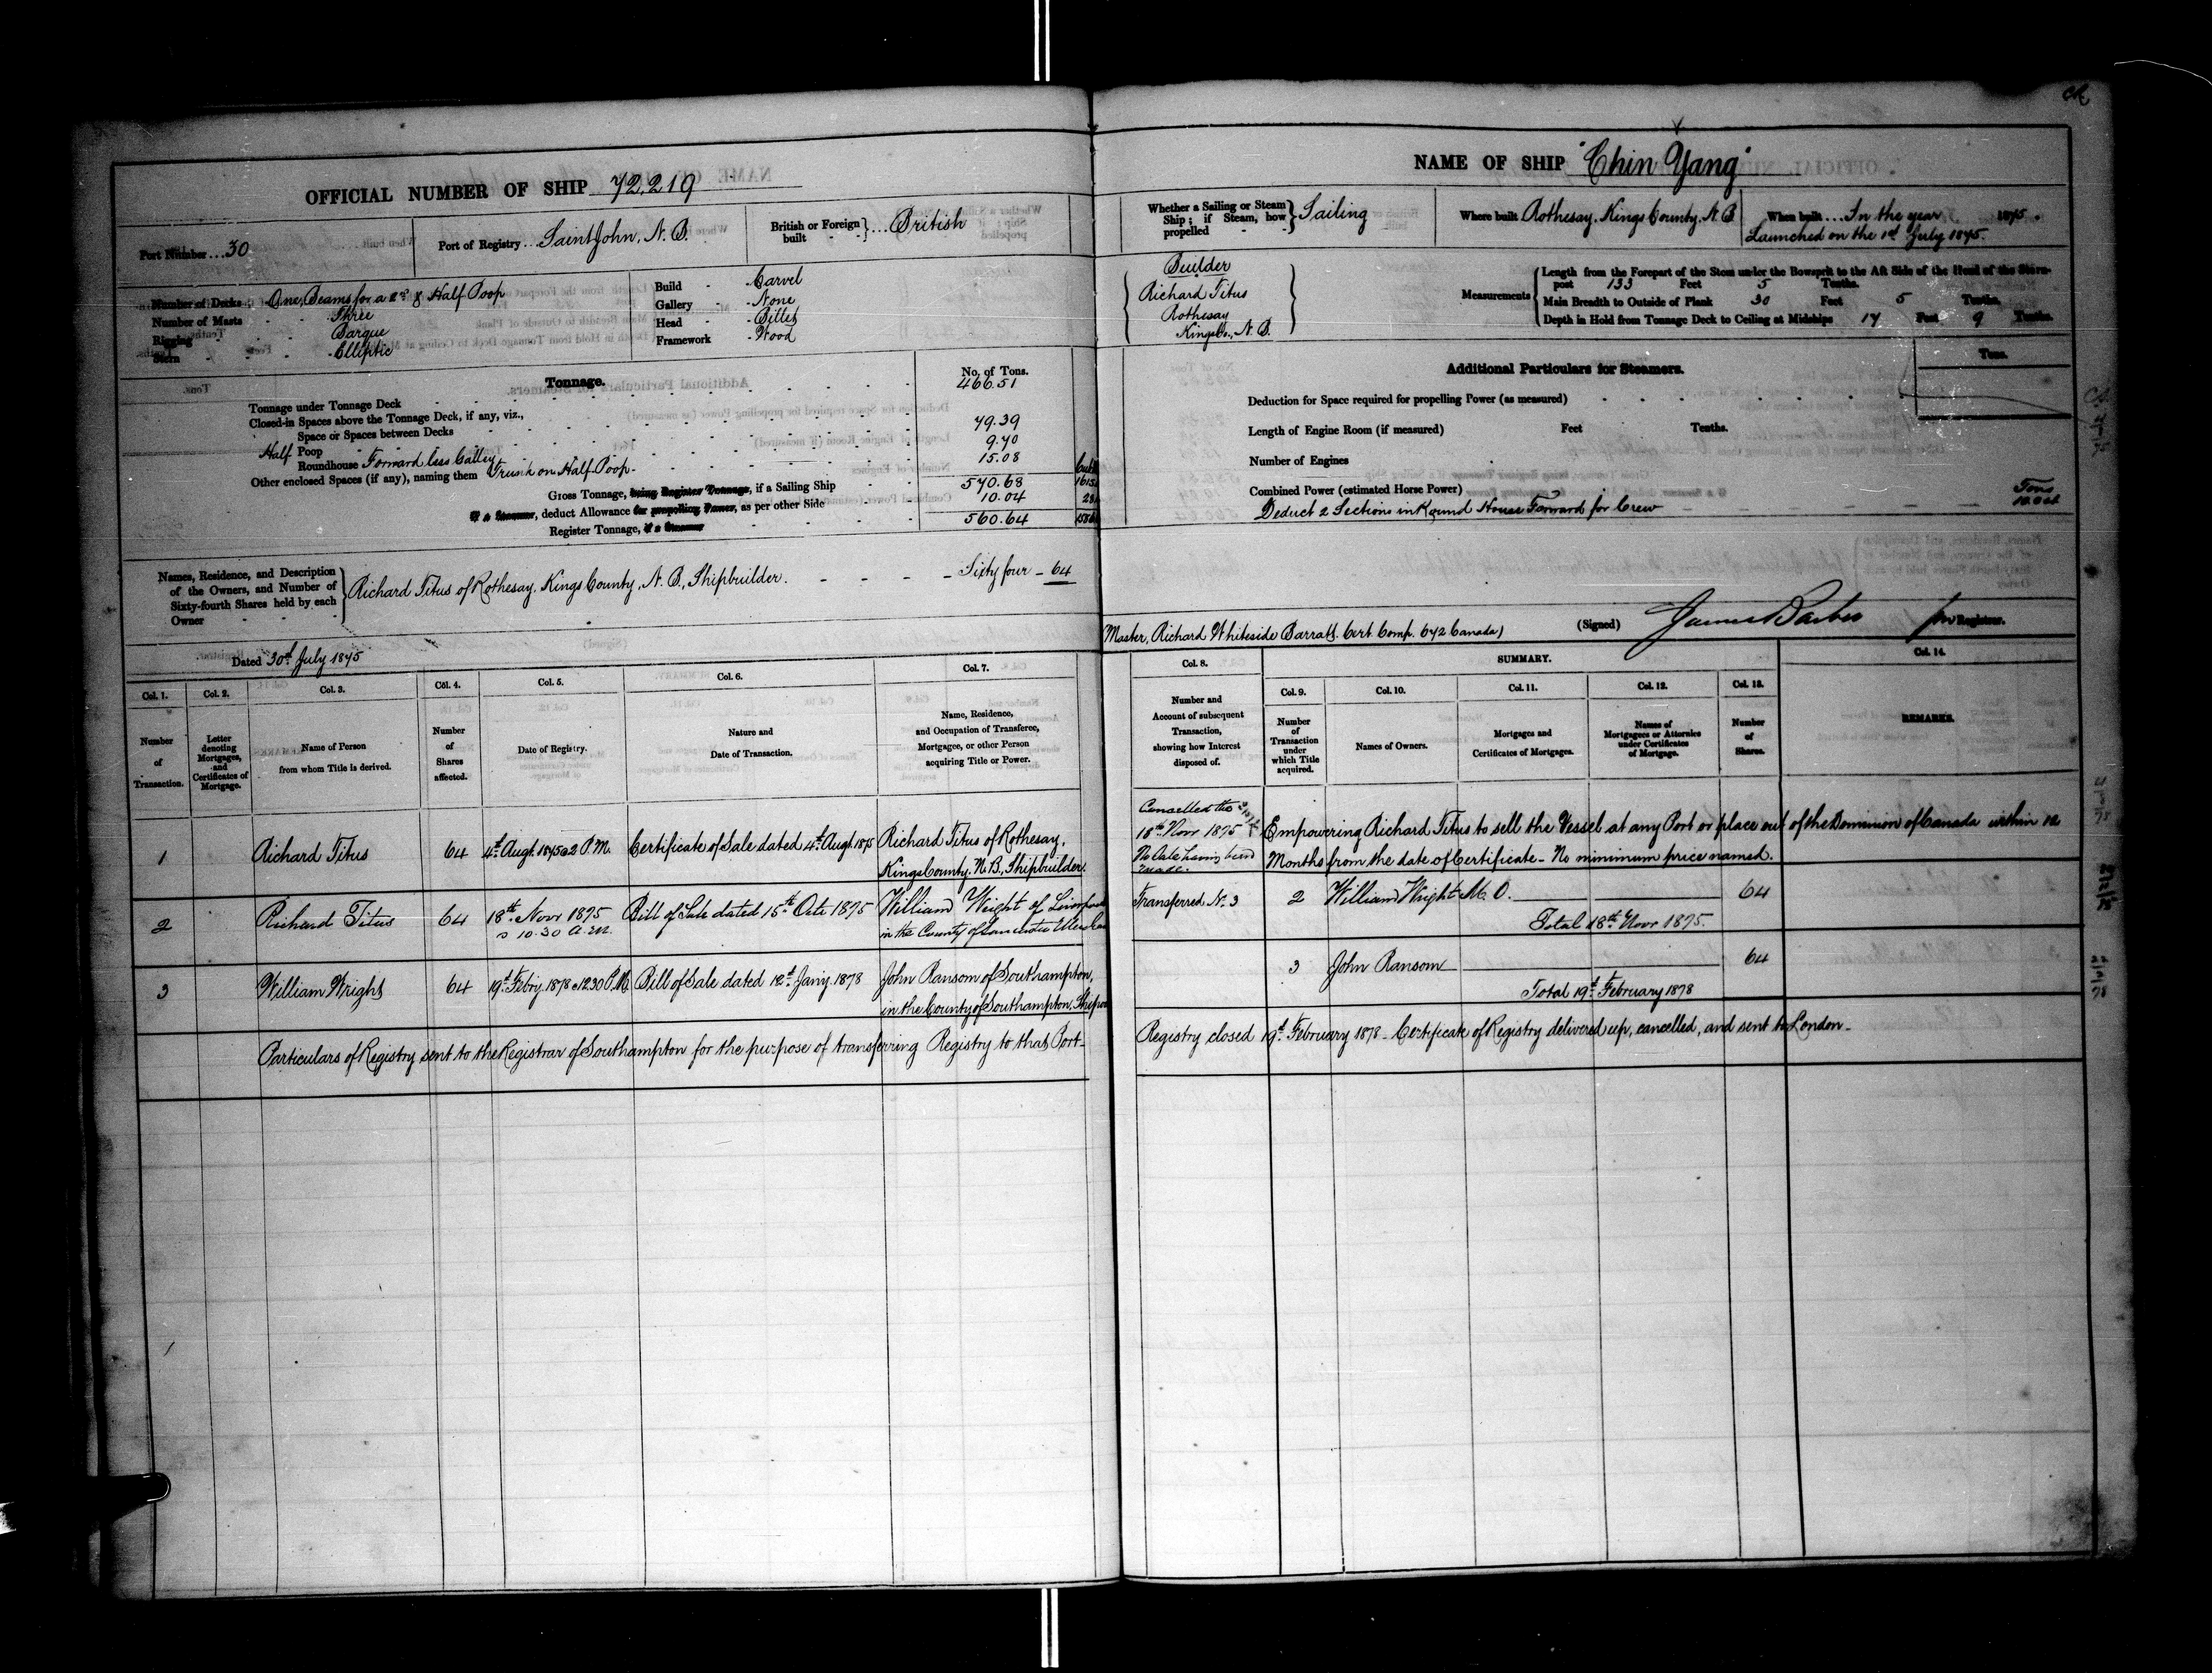 OFFICIAL NUMBER OF SHIP 72,219
Port Number ... 30
Port of Registry ... Saint John, N.B.
British or Foreign built } ... British
Number of Decks - One, Beams for a 2nd & Half Poop
Number of Masts - Three
Rigging - Barque
Stern - Elliptic
Build - Carvel
Gallery - None
Head - Billet
Framework - Wood
Tonnage. No. of Tons.
Tonnage under Tonnage Deck 466.51
Closed-in Spaces above the Tonnage Deck, if any, viz.,
Space or Spaces between Decks 79.39
Half Poop 9.70
Roundhouse Forward less Galley
Other enclosed Spaces (if any), naming them Trunk on Half Poop - 15.08
Gross Tonnage, being Register Tonnage, if a Sailing Ship 570.68
If a Steamer, deduct Allowance for propelling Power, as per other Side 10.04
Register Tonnage, if a Steamer 560.64
Names, Residence, and Description of the Owners, and Number of Sixty-fourth Shares held by each Owner } Richard Titus of Rothesay, Kings County, N.B., Shipbuilder. - Sixty four - 64
Dated 30th July 1875
Col. 1. Number of Transaction.
Col. 2. Letter denoting Mortgages, and Certificates of Mortgage.
Col. 3. Name of Person from whom Title is derived.
Col. 4. Number of Shares affected.
Col. 5. Date of Registry.
Col. 6. Nature and Date of Transaction.
Col. 7. Name, Residence, and Occupation of Transferee, Mortgagee, or other Person acquiring Title or Power.
1 Richard Titus 64 4th Augt 1875 @ 2 P.M. Certificate of Sale dated 4th Augt 1875 Richard Titus of Rothesay,
Kings County, N.B., Shipbuilder.
2 Richard Titus 64 18th Novr 1875 @ 10.30 A.M. Bill of Sale dated 15th Octr 1875 William Wright of
in the County of Lancaster
3 William Wright 64 19th Febry 1878 @ 12.30 P.M. Bill of Sale dated 12th Jany 1878 John Ransom of Southampton,
in the County of Southampton,
Particulars of Registry sent to the Registrar of Southampton for the purpose of transferring Registry to that Port -
NAME OF SHIP "Chin Yang"
Whether a Sailing or Steam Ship; if Steam, how propelled } Sailing
Where built Rothesay, Kings County, N.B.
When built ... In the year 1875.
Launched on the 1st July 1875.
Builder
Richard Titus
Rothesay
Kings Co., N.B.
Measurements
Length from the Forepart of the Stem under the Bowsprit to the Aft Side of the Head of the Stern-
post 133 Feet 5 Tenths.
Main Breadth to Outside of Plank 30 Feet 5 Tenths.
Depth in Hold from Tonnage Deck to Ceiling at Midships 17 Feet 9 Tenths.
Additional Particulars for Steamers. Tons.
Deduction for Space required for propelling Power (as measured)
Length of Engine Room (if measured) Feet Tenths.
Number of Engines
Combined Power (estimated Horse Power) Tons
Deduct 2 Sections in Round House Forward for Crew 10.04
Master, Richard Whiteside Barratt. Cert. Comp. 642 Canada)
(Signed) James Barber for Registrar.
Col. 8. Number and Account of subsequent Transaction, showing how Interest disposed of.
SUMMARY.
Col. 9. Number of Transaction under which Title acquired.
Col. 10. Names of Owners.
Col. 11. Mortgages and Certificates of Mortgages.
Col. 12. Names of Mortgagees or Attornies under Certificates of Mortgage.
Col. 13. Number of Shares.
Col. 14. REMARKS.
Cancelled this
18th Novr 1875
No Sale having been
made.
Empowering Richard Titus to sell the Vessel at any Port or place out of the Dominion of Canada within 12
Months from the date of Certificate - No minimum price named.
Transferred No. 3 2 William Wright M.O. 64
Total 18th Novr 1875.
3 John Ransom 64
Total 19th February 1878
Registry closed 19th February 1878 - Certificate of Registry delivered up, cancelled, and sent to London -